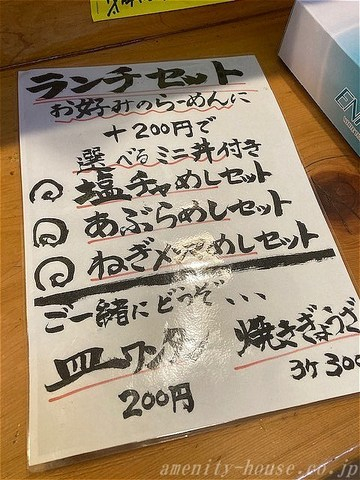 ランチセット
お好みのらーめんに
+200円で
選べるミニ丼付き
塩チャめしセット
あぶらめしセット
ねぎメンマめしセット
ご一緒にどうぞ、、、
皿ワンタン
200円
焼きぎょうざ
3ケ300
amenity-house.co.jp